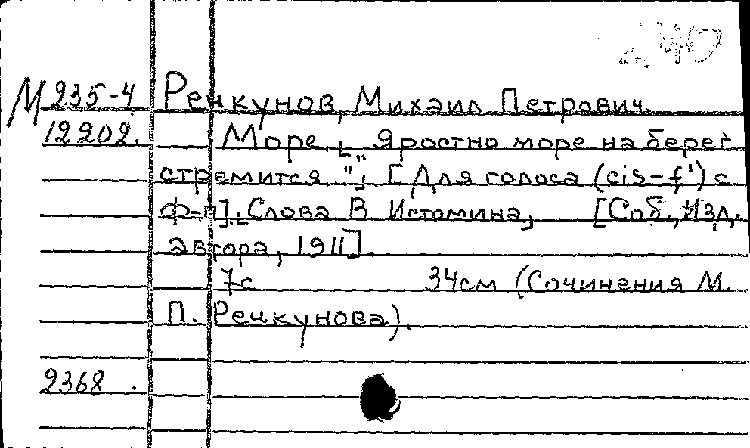 240
М 235-4 Речкунов, Михаил Петрович.
12202. Море. „Яростно море на берег
стремится "; [Для голоса (cis-f') с
ф-п]. Слова В Истомина, [Соб. изд.
автора, 1911].
7с 34см (Сочинения М.
П. Речкунова).
2368.